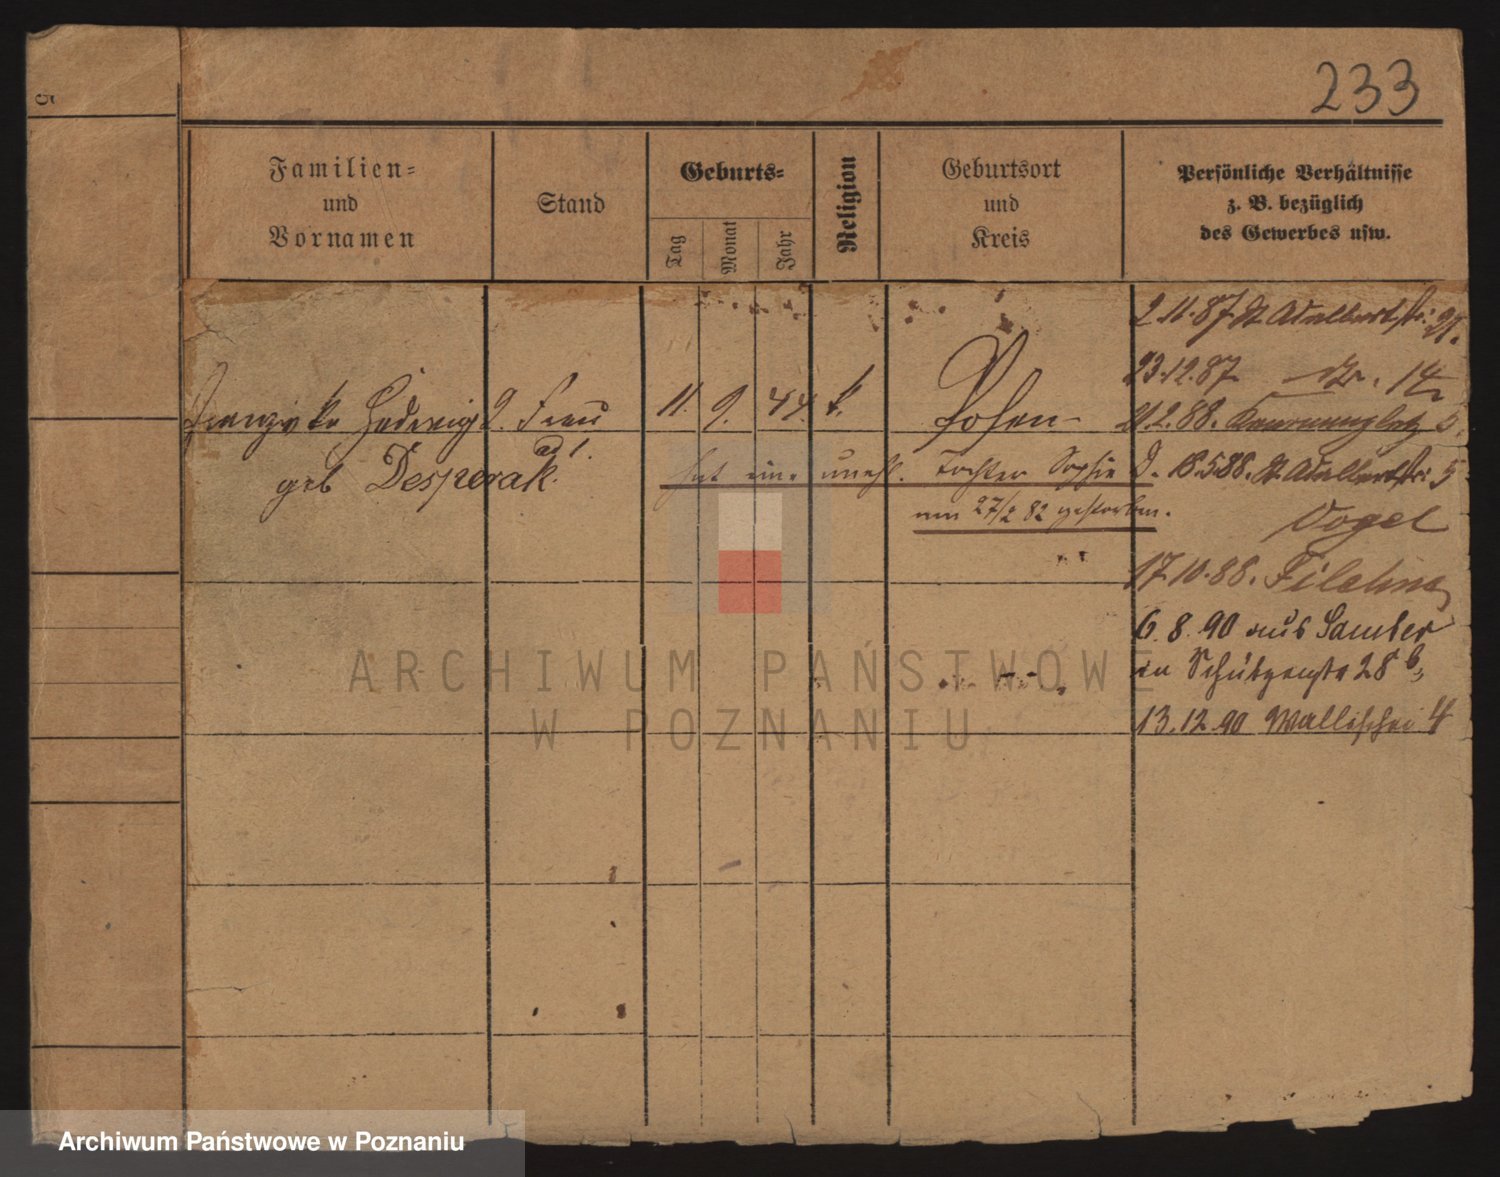 233
Familien=
und
Vornamen
Stand
Geburts=
Tag
Monat
Jahr
Religion
Geburtsort
und
Kreis
Persönliche Verhältnisse
z. B. bezüglich
des Gewerbes usw.
2.11.87. St Adalbertstr. 27.
23.12.87 14
Hedwig Frau 11. 9. 44. k. Posen
21.2.88. 5.
geb Desperak ad 1.
hat eine unehl. Tochter Sophie D. 18.5.88. St Adalbertstr. 5
am 27/2 82 gestorben.
Vogel
17.10.88. Filehne
6.8.90 aus Samter
in Schützenstr 28 b,
13.12.90 Wallischei 4
ARCHIWUM PAŃSTWOWE
W POZNANIU
Archiwum Państwowe w Poznaniu